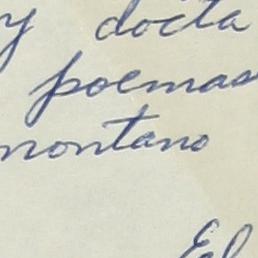 y docta
poemas
montano
El